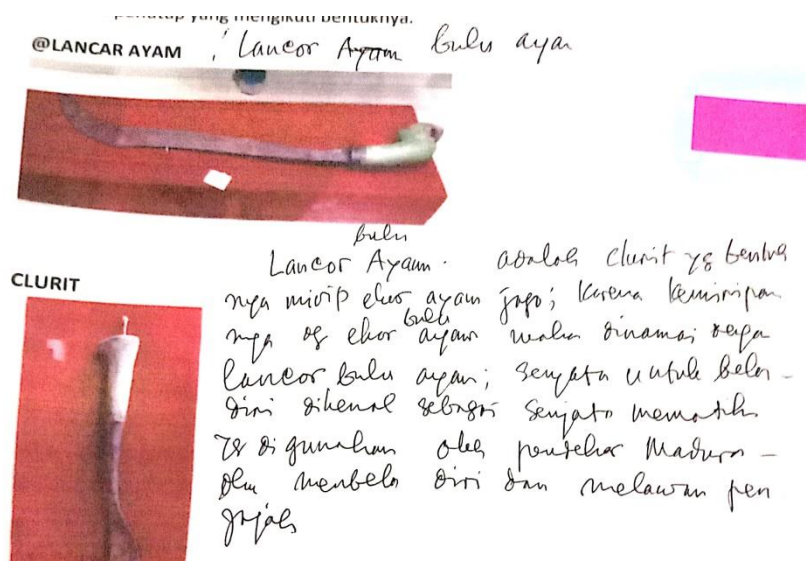 penutup yang mengikuti bentuknya.
@LANCAR AYAM ; Lancor Ayam bulu ayam
bulu
Lancor Ayam. adalah clurit yg bentuk
CLURIT
nya mirip ekor ayam jago; karena kemiripan
bulu
nya dg ekor ayam maka dinamai
lancor bulu ayam; senjata untuk bela-
diri dikenal sebagai senjata mematikan
yg digunakan oleh pendekar Madura -
membela diri dan melawan pen
jajah